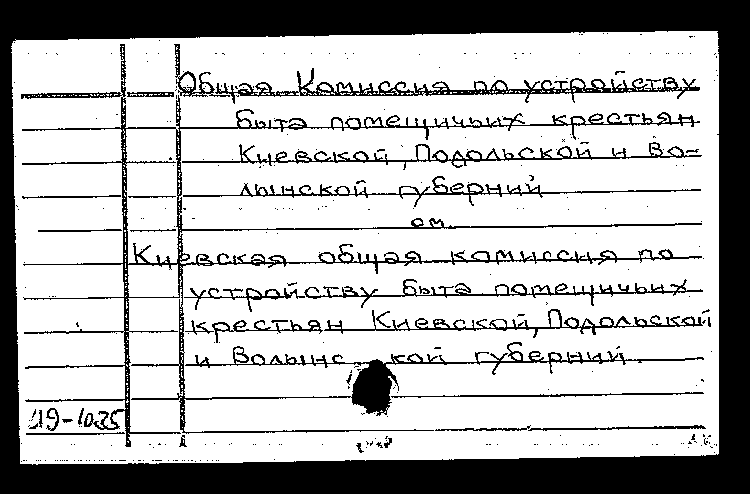 Общая Комиссия по устройству
быта помещичьих крестьян
Киевской, Подольской и Во-
лынской губерний
см.
Киевская общая комиссия по
устройству быта помещичьих
крестьян Киевской, Подольской
и Волынс кой губерний.